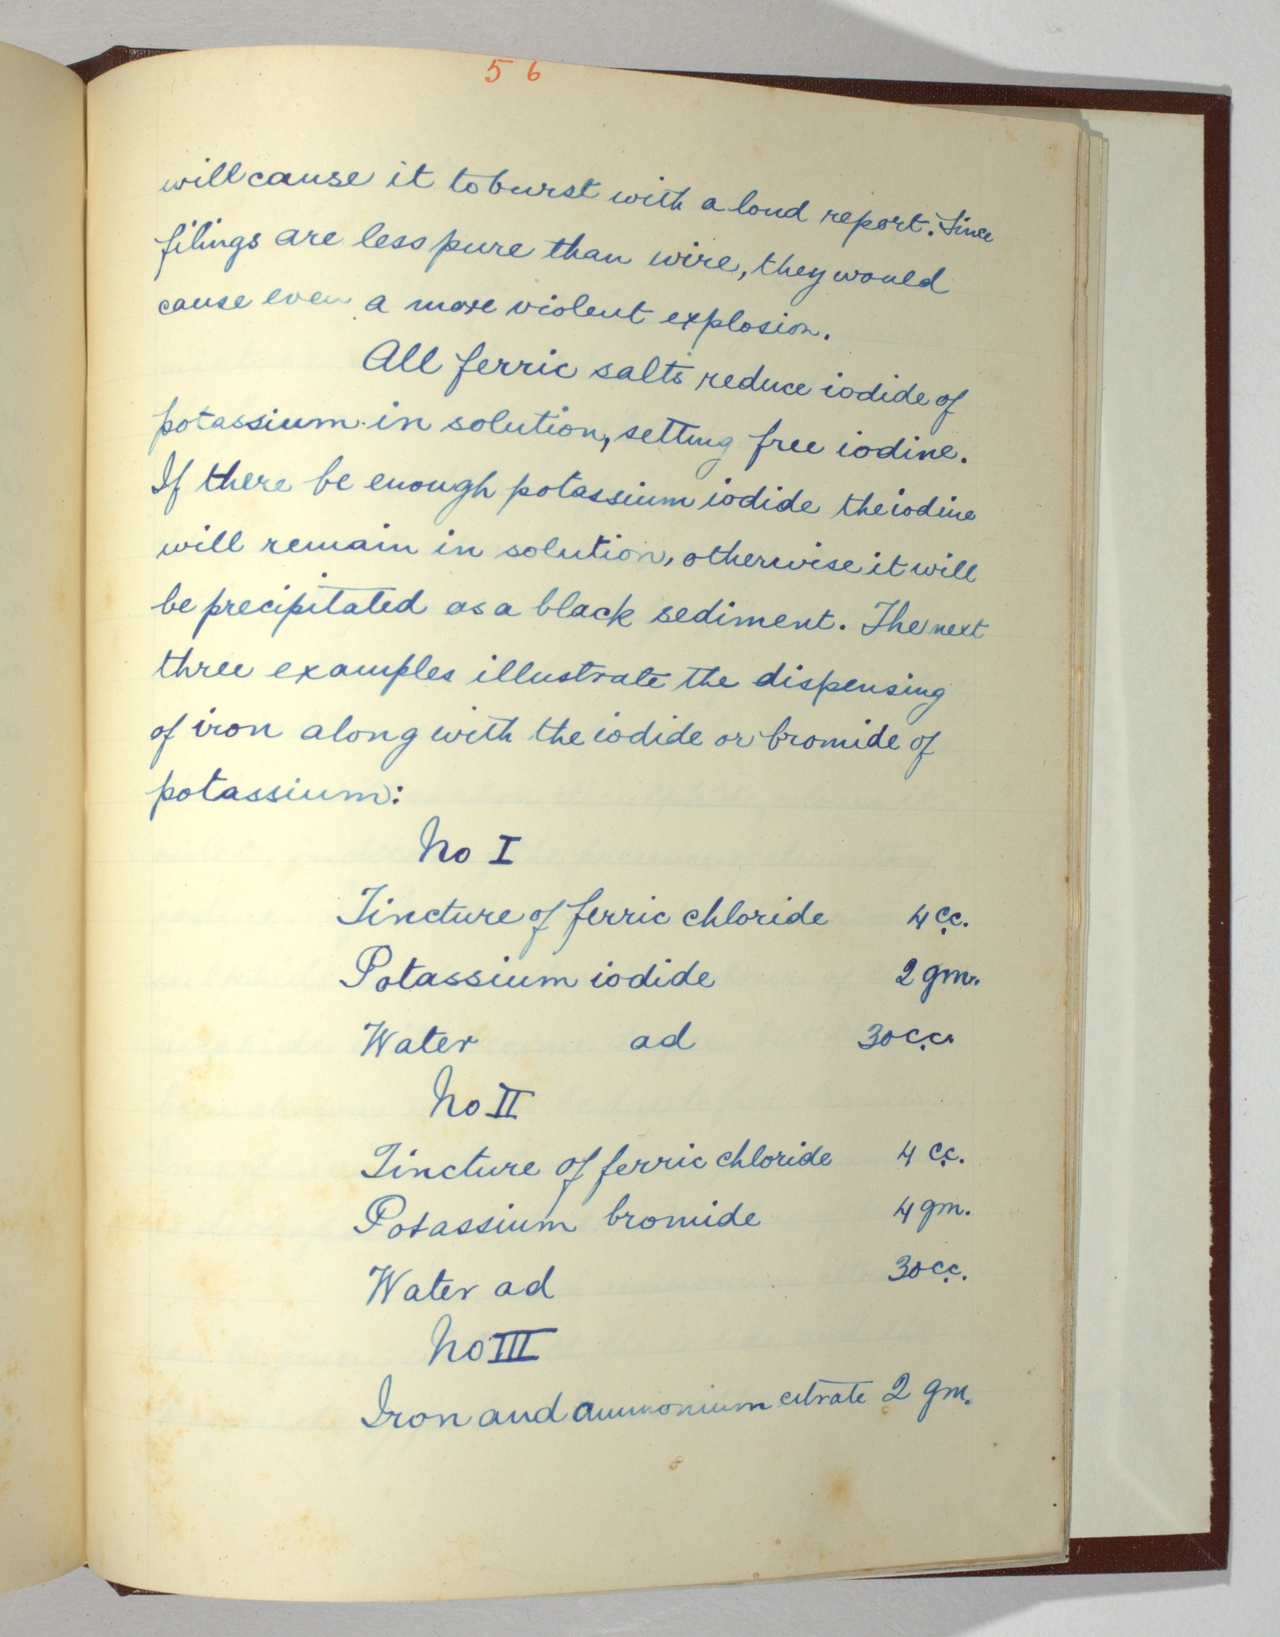 56
will cause it to burst with a loud report. Since
filings are less pure than wire, they would
cause even a more violent explosion.
All ferric salts reduce iodide of
potassium in solution, setting free iodine.
If there be enough potassium iodide the iodine
will remain in solution, otherwise it will
be precipitated as a black sediment. The next
three examples illustrate the dispensing
of iron along with the iodide or bromide of
potassium:
No I
Tincture of ferric chloride 4 c.c.
Potassium iodide 2 gm.
Water ad 30 c.c.
No II
Tincture of ferric chloride 4 c.c.
Potassium bromide 4 gm.
Water ad 30 c.c.
No III
Iron and ammonium citrate 2 gm.